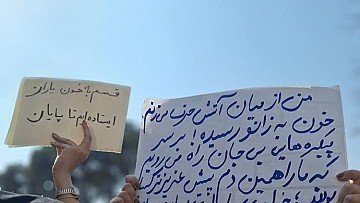 قسم با خون یاران
ایستاده ایم تا پایان
من از میان آتش حرف می زنم
خون به زانو رسیده! بر سر
پیکرهایی بی جان راه می روید
که تا همین دم پیش عزیز عزیزی
بودند؛